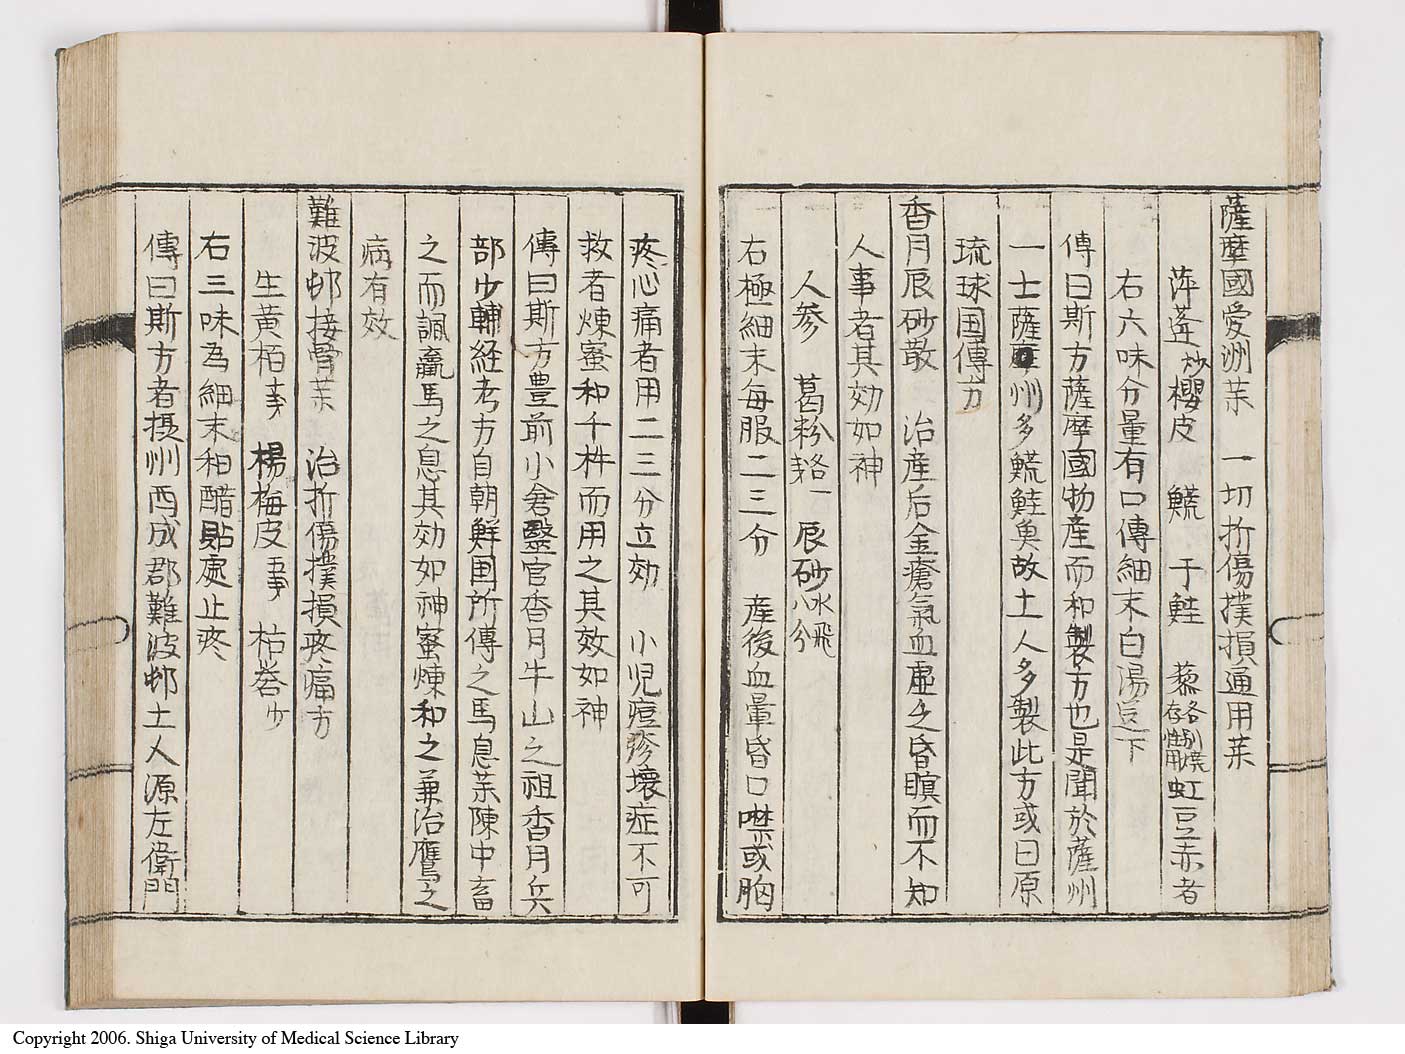 薩摩國愛洲茱　一切折傷撲損通用茱
萍蓬炒櫻皮　鱿　于鮭　藜各別燒存性用虹豆赤者
右六味分量有口傳細末白湯送下
傳曰斯方薩摩國物産而和製方也是聞於薩州
一士薩州多鱿鮭魚故土人多製此方或曰原
琉球国傳方
香月辰砂散　治産后金瘡氣血虚乏昏瞑而不知
人事者其効如神
人参　葛粉各一　辰砂水飛八分
右極細末毎服二三分　産後血暈昏口噤或胸
疼心痛者用二三分立効　小児痘疹壊症不可
救者煉蜜和千杵而用之其效如神
傳曰斯方豊前小倉醫官香月牛山之祖香月兵
部少輔経考方自朝鮮国所傳之馬息茱陳中畜
之而諷羸馬之息其効如神蜜煉和之兼治鷹之
病有效
難波邨接骨茱　治折傷撲損疼痛方
生黄栢　楊梅皮　枯礬少
右三味為細末和醋貼處止疼
傳曰斯方者摂州西成郡難波邨土人源左衛門
Copyright 2006. Shiga University of Medical Science Library